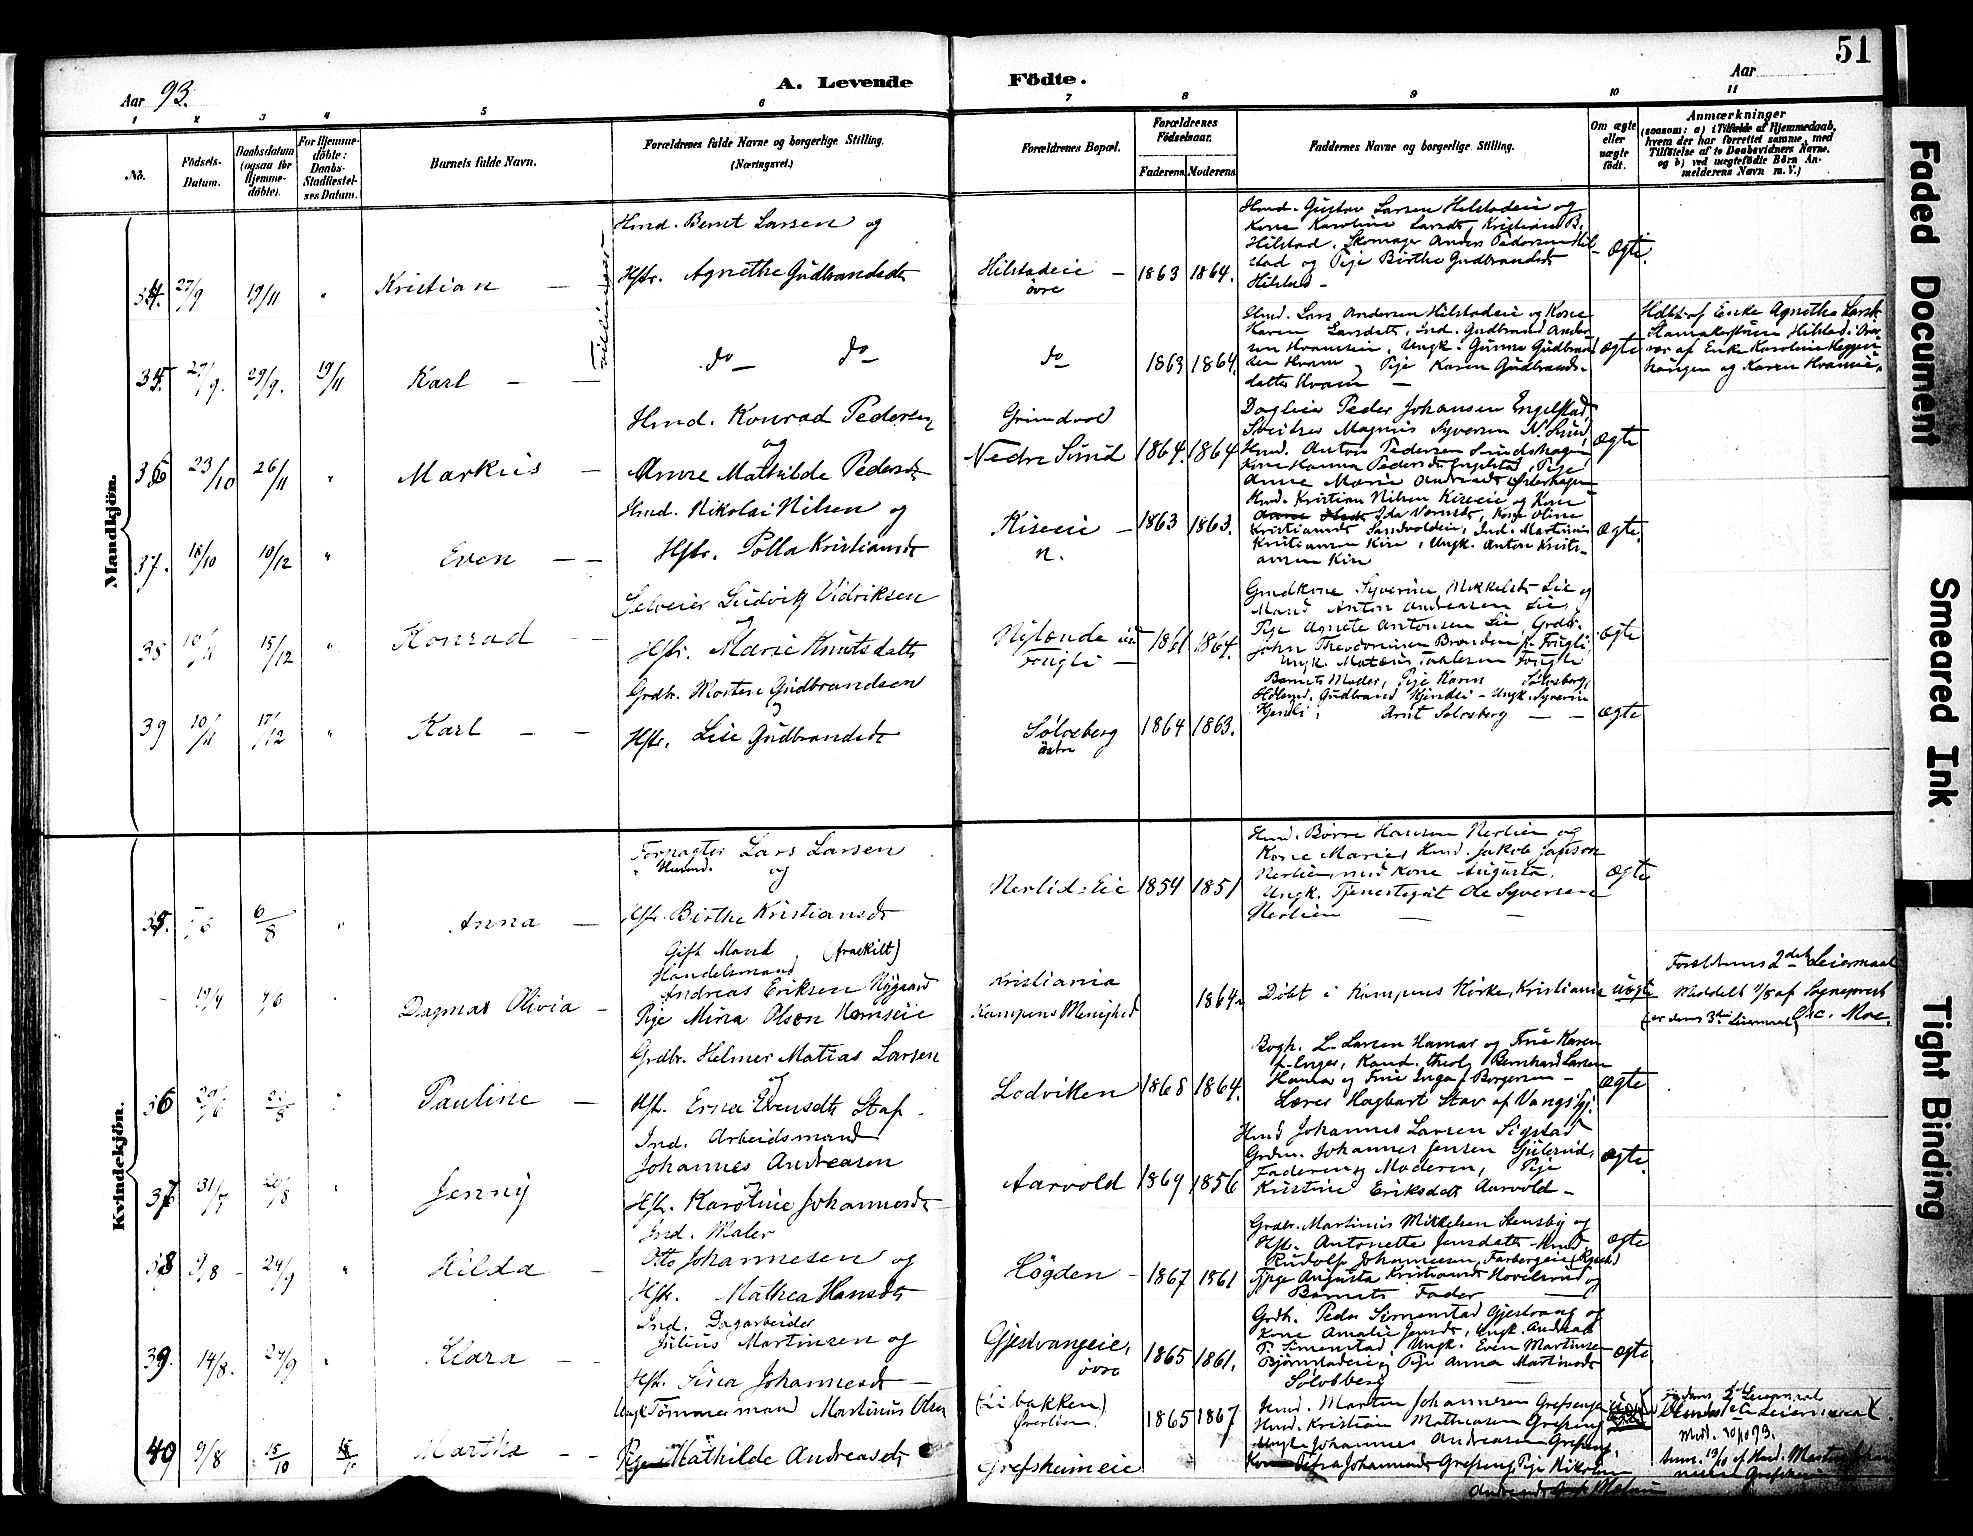 51
Aar 93.
A. Levende Födte.
Aar
1 2 3 4 5 6 7 8 9 10 11
No.
Födsels-Datum.
Daabsdatum (ogsaa for Hjemmedöbte).
For Hjemmedöbte: Daabs-Stadfæstelses Datum.
Barnets fulde Navn.
Forældrenes fulde Navne og borgerlige Stilling. (Næringsvei.)
Forældrenes Bopæl.
Forældrenes Födselsaar.
Faderens Moderens
Faddernes Navne og borgerlige Stilling.
Om ægte eller uægte födt.
Anmærkninger
(saasom: a) i Tilfælde af Hjemmedaab,
hvem der har forrettet samme, med
Tilföielse af to Daabsvidners Navne,
og b) ved uegtefödte Börn An-
melderens Navn m. V.)
Mandkjön.
Tvillinger
34. 27/9 19/11 " Kristian —
Hmd. Bernt Larsen og
Hstr. Agnethe Gudbrandsdt
Hilstadeie — øvre
1863 1864.
Hmd. Gustav Larsen Hilstadeie og
Kone Karoline Larsdt, Kristian B.
Hilstad, Skomager Anders Pedersen Hil-
stad og Pige Birthe Gudbrandsdt
Hilstad —
Ægte.
35. 27/9. 29/9. 19/11 Karl — —
do do
do
1863 1864.
Hmd. Lars Andersen Hilstadeie og Kone
Karen Larsdatt, Ind. Gudbrand Ander
sen Hvameie, Ungk. Gunne Gudbrand
sen Hvam og Pige Karen Gudbrands-
datter Hvam —
ægte
Hdbt. af Enke Agnethe Larsdt.
af Enke Karoline
og Karen
36 23/10 26/11 " Markus —
Hmd. Konrad Pedersen
og
Anne Mathilde Pedersdt
Grimdvol
Nedre Sund
1864. 1864
Dagleier Peder Johansen Engelstad,
Sveitser Magnus Syversen N. Sund,
Hmd. Anton Pedersen Sundshagen
Kone Hanna Pedersdt Engelstad, Pige
Anne Marie Andreasdt Østerhagen
Ægte
37. 18/10 10/12 " Even — —
Hmd. Nikolai Nilsen og
Hstr. Polla Kristiansdt
Kiseeie — n.
1863 1863.
Hmd. Kristian Nilsen Kiseeie og Kone
Ida, Kone Oline
Kristiansdt Sandvoldeie, Ind. Martinus
Kristiansen Kise, Ungk. Anton Kristi-
ansen Kise
Ægte.
38 10/11 15/12 " Konrad — —
Selveier Ludvig Vidriksen
og
Hstr. Marie Knutsdatt
Nylænde
Fougli —
1861 1864.
Grudkone Syverine Mikkelsdt Lie og
Mand Anton Andreasen Lie,
Pige Agnete Antonsen Lie, Grdbr.
John Theodorinsen Branden p. Fougli,
Ungk. Fougli
ægte
39 10/11 17/12 " Karl — —
Grdbr. Morten Gudbrandsen
og
Hstr. Lise Gudbrandsdt
Sølveberg
østre
1864 1863.
Barnets Moder, Pige Karen Sølveberg,
Gudbrand Kjendli — Ungk. Syverin
Kjendli, Arnt Solveberg — —
Ægte
Kvindekjön.
35. 6/8 " Anna —
Forpagter Lars Larsen
" Husmd. og
Hstr. Birthe Kristiansdt
Nerlid-Eie
1854 1851
Hmd. Børre Hansen Nerlien og
Kone Marie, Hmd. Jakob Jansen
Nerlien med Kone Augusta,
Ungk. Tjenestegut Ole Syversen
Nerlien — —
ægte
— 19/4 4/6 Dagmar Olivia —
Gift Mand (fraskilt)
Handelsmand
Andreas Eriksen Nygaard
Pige Mina Olsen Hornseie
Kristiania
Kampens Menighed
1864.
Döbt i Kampens Kirke, Kristiania
uægte
Forældrenes 2det Leiermaal
Meldt af Sogneprest
(er dens 3die Leiermaal) Chr. Moe.
36 Pauline —
Grdbr. Helmer Matias Larsen
og
Hst. Erna Evensdt Staf.
Lodviken
1868 1864.
Bogh. L. Larsen Hamar og Frue Karen
f. Enger, Kand. theol. Bernhard Larsen
Hamar og Frue Inga f. Borgersen —
Lærer Hagbart Stav af Vang shj.
ægte
37 31/7 20/8 " Jenny
Ind. Arbeidsmand
Johannes Andreasen
og
Hstr. Karoline Johannesdt
Aarvold
1869 1856
Hmd Johannes Larsen Sigstad
Grdm. Johannes Jensen Gjulsrud,
Faderen og Moderen, Pige
Kristine Eriksdatt Aarvold —
Ægte.
38 9/8 24/9 " Hilda —
Ind. Maler
Otto Johannesen og
Hstr. Mathea Hansdt
Høgden —
1867 1861
Grdbr. Martinus Mikkelsen Stensby og
Hst. Antonette Jensdatt — Hmd
Rudolf Johannesen, Farbergeie
Pige Augusta Kristiansdt Hovilsrud og
Barnets Fader
Ægte
39. 14/8. 24/9 " Klara — —
Ind. Dagarbeider
Julius Martinsen og
Hst. Lina Johannesdt —
Gjestvangeie, øvre
1865 1861.
Grdbr. Peder Simenstad Gjestvang og
Kone Amalie Jensdt, Ungk. Andreas
P. Simenstad, Ungk. Even Martinsen
Bjørnstadeie, Pige Anna Martinsdt
Solvbberg
ægte.
40 9/8 15/10 Martha — —
Ungk. Tömmermand Martinus Olsen
og
Pige Mathilde Andreasdt
(Libakken)
Øverlien
Grefsheimeie
1865 1867
Hmd. Morten Johannesen Grefseng
Hmd. Kristian Mathiasen Grefseng
Ungk. Johannes Andreasen Grefseng,
Petra Johannesdt Grefseng, Pige
Faderens Leiermaal
Leiermaal
Anm. af Hmd. Morten
Faded Document
Smeared Ink
Tight Binding